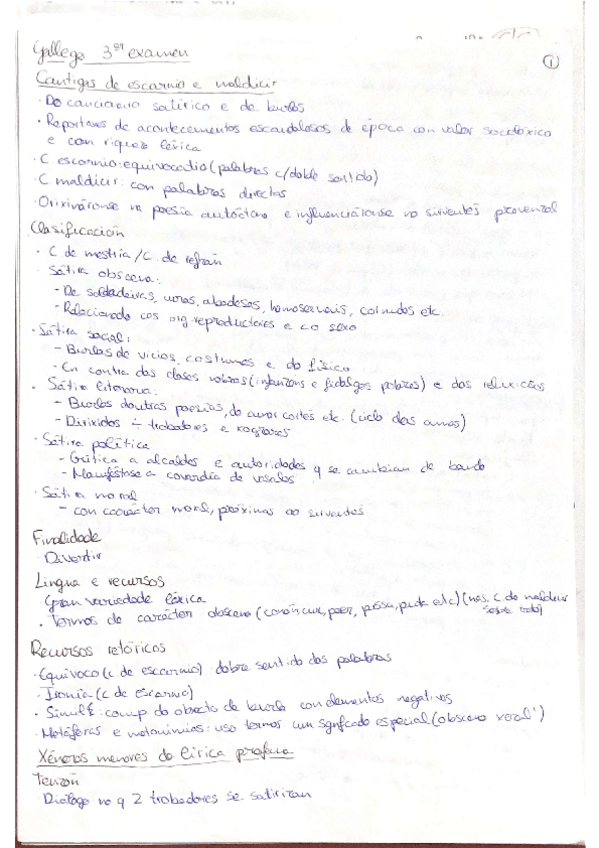 Gallego 3er examen
1
Cantigas de escarnio e maldicir
· Do cancioneiro satírico e de burlas
· Reportaxes de acontecementos escandalosos de época con valor sociolóxico
e con riqueza léxica
· C escarnio: equivocadio (palabras c/doble sentido)
· C maldicir: con palabras directas
· Orixináronse na poesía autóctona e influenciáronse no sirventés provenzal
Clasificación
· C de mestría / C. de refrán
· Sátira obscena:
- De soldadeiras, abadesas, homosexuais, cornudos etc.
- Relacionada cos org. reproductores e co sexo
· Sátira social:
- Burlas de vicios, costumes e do físico
- En contra das clases nobres (infanzons e fidalgos pobres) e das
· Sátira literaria:
- Burlas doutras poesías, do amor cortés etc. (ciclo das amas)
- Dirixidos trobadores e xograres
· Sátira política
- Crítica a alcaides e autoridades q se cambian de bando
- Maniféstase a covardía de vasalos
· Sátira moral
- con carácter moral, próximas ao sirventés
Finalidade
· Divertir
Lingua e recursos
Gran variedade léxica
· Termos de carácter obsceno (peer, puta etc) (nas C de maldicir
sobre todo)
Recursos retóricos
· Equívoco (c de escarnio) dobre sentido das palabras
· Ironía (c de escarnio)
· Símil: comp do obxecto de burla con elementos negativos
· Metáforas e metonimias: uso termos cun significado especial (obsceno
Xéneros menores da lírica profana
Tenzón
Diálogo no q 2 trobadores se satirizan